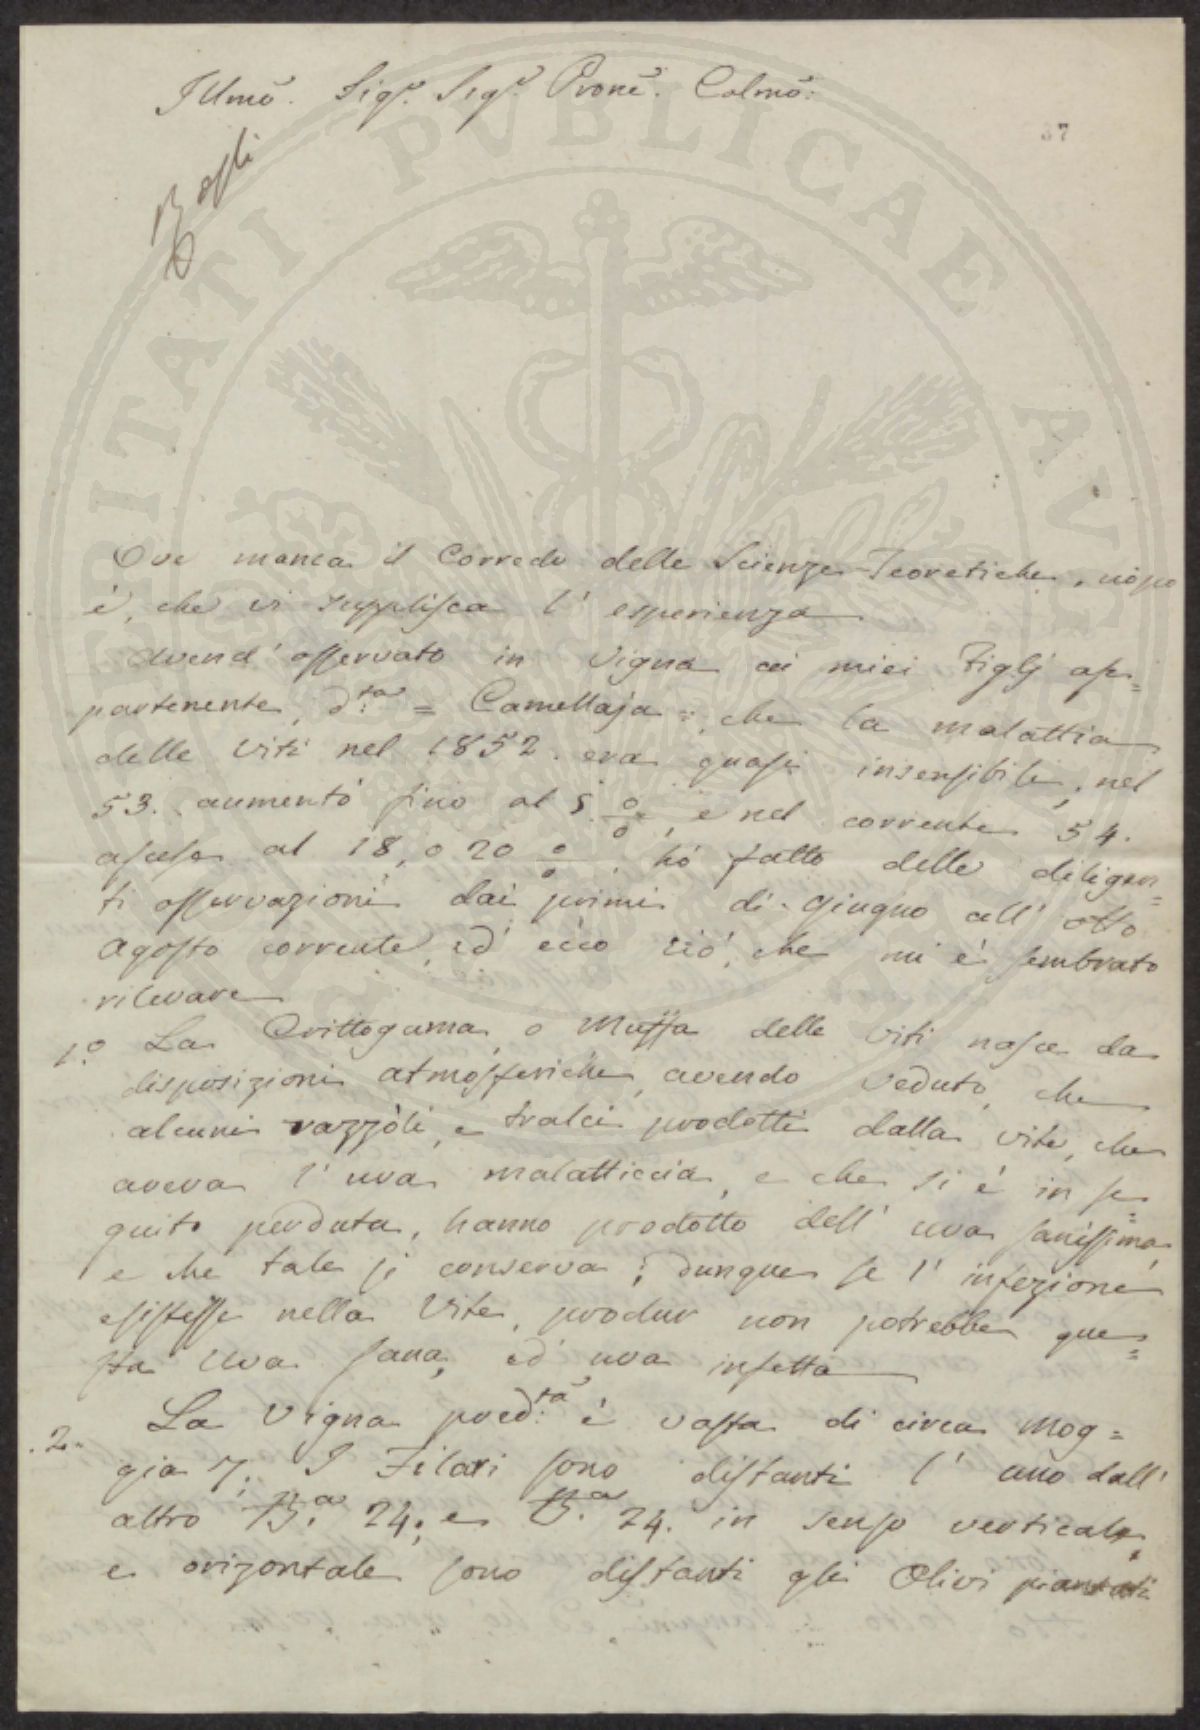 Illmo. Sigr. Sigr. Prone. Colmo:
37
Ove manca il Corredo delle Scienze Teoretiche, uopo
è, che vi supplisca l' esperienza
Avend' osservato in Vigna ai miei Figlj ap=
partenente, d.ta = Camellaja =, che la malattia
delle Viti nel 1852. era quasi insensibile, nel
53. aumentò fino al 5. %, e nel corrente 54.
ascese al 18, o 20 %. hò fatto delle diligen=
ti osservazioni dai primi di Giugno all' otto
Agosto corrente, ed' ecco ciò, che mi è sembrato
rilevare
1.o La Crittogama, o Muffa delle Viti nasce da
disposizioni atmosferiche, avendo veduto, che
alcuni razzòli, e tralci prodotti dalla vite, che
aveva l' uva malatticcia, e che si è in se=
guito perduta, hanno prodotto dell' uva sanissima,
e che tale si conserva; dunque se l' infezione
esistesse nella Vite, produr non potrebbe que=
sta Uva sana, ed' uva infetta
.2. La Vigna pred.ta è vasta di circa Mog=
gia 7. I Filari sono distanti l' uno dall'
altro B.a 24. e B.a 24. in senso verticale,
e orizontale sono distanti gli Olivi piantati
PVBLICAE